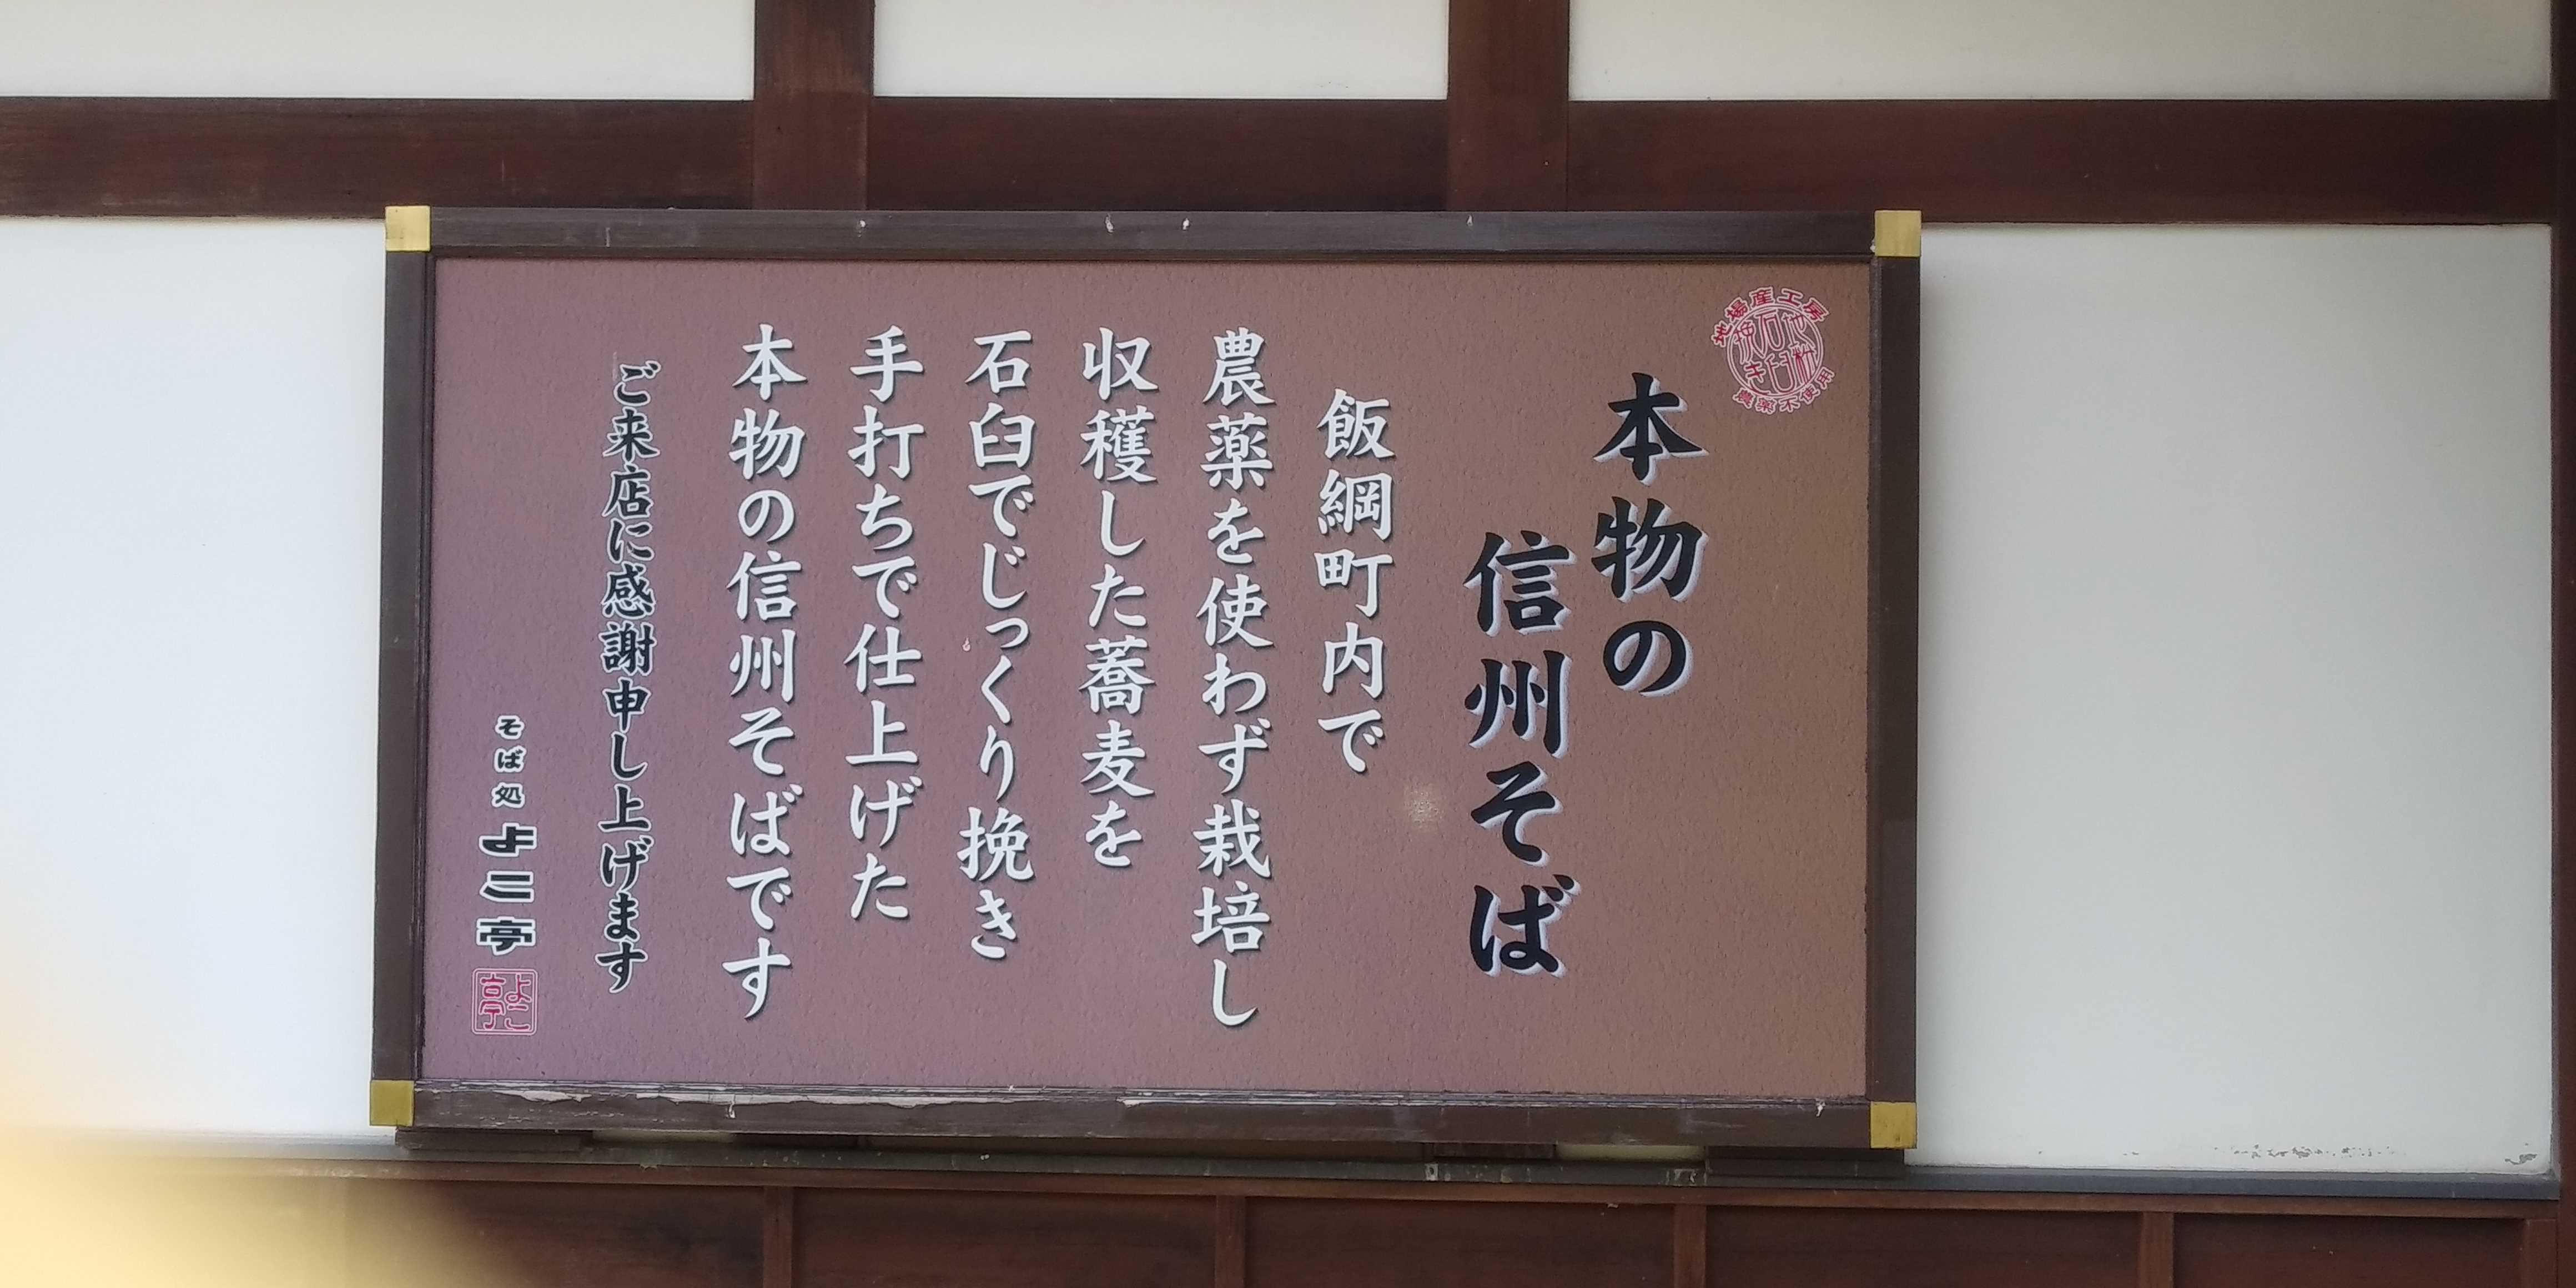 地場産工房
地粉
石臼
挽き
農薬不使用
本物の
信州そば
飯綱町内で
農薬を使わず栽培し
収穫した蕎麦を
石臼でじっくり挽き
手打ちで仕上げた
本物の信州そばです
ご来店に感謝申し上げます
そば処 よこ亭
よこ亭